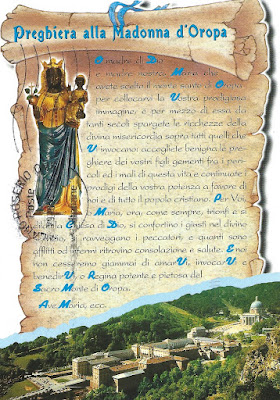 Preghiera alla Madonna d'Oropa
O madre di Dio
e madre nostra Maria, che
avete scelto il sacro monte di Oropa
per collocarvi la Vostra prodigiosa
immagine, e per mezzo di essa da
tanti secoli spargete le ricchezze della
divina misericordia sopra tutti quelli che
Vi invocano; accogliete benigna le pre-
ghiere dei vostri figli gementi fra i peri-
coli ed i mali di questa vita e continuate i
prodigi della vostra potenza a favore di
noi e di tutto il popolo cristiano. Per Voi, o
Maria, ora, come sempre, trionfi la
Chiesa di Dio, si confortino i giusti nel divino
servizio, si ravveggano i peccatori, e quanti sono
afflitti ed infermi ritrovino consolazione e salute. E noi
non cesseremo giammai di amarVi, invocarVi e
benedirVi, o Regina potente e pietosa del
Sacro Monte di Oropa.
Ave Maria, ecc.